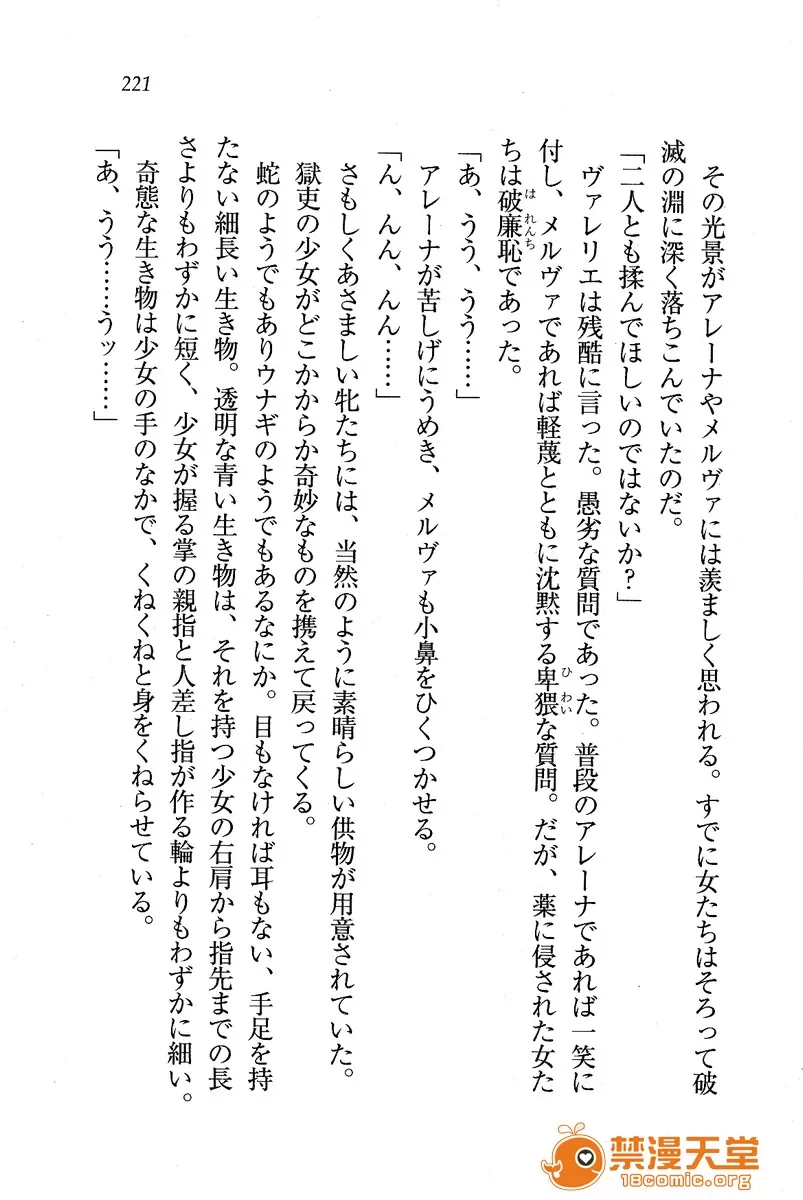 221
その光景がアレーナやメルヴァには羨ましく思われる。すでに女たちはそろって破
滅の淵に深く落ちこんでいたのだ。
「二人とも揉んでほしいのではないか？」
ヴァレリエは残酷に言った。愚劣な質問であった。普段のアレーナであれば一笑に
付し、メルヴァであれば軽蔑とともに沈黙する卑猥な質問。だが、薬に侵された女た
ひ わい
ちは破廉恥であった。
は れんち
「あ、うう、うう……」
アレーナが苦しげにうめき、メルヴァも小鼻をひくつかせる。
「ん、んん、んん……」
さもしくあさましい牝たちには、当然のように素晴らしい供物が用意されていた。
獄吏の少女がどこかからか奇妙なものを携えて戻ってくる。
蛇のようでもありウナギのようでもあるなにか。目もなければ耳もない、手足を持
たない細長い生き物。透明な青い生き物は、それを持つ少女の右肩から指先までの長
さよりもわずかに短く、少女が握る掌の親指と人差し指が作る輪よりもわずかに細い。
奇態な生き物は少女の手のなかで、くねくねと身をくねらせている。
「あ、うう……うッ……」
禁漫天堂
18comic.org